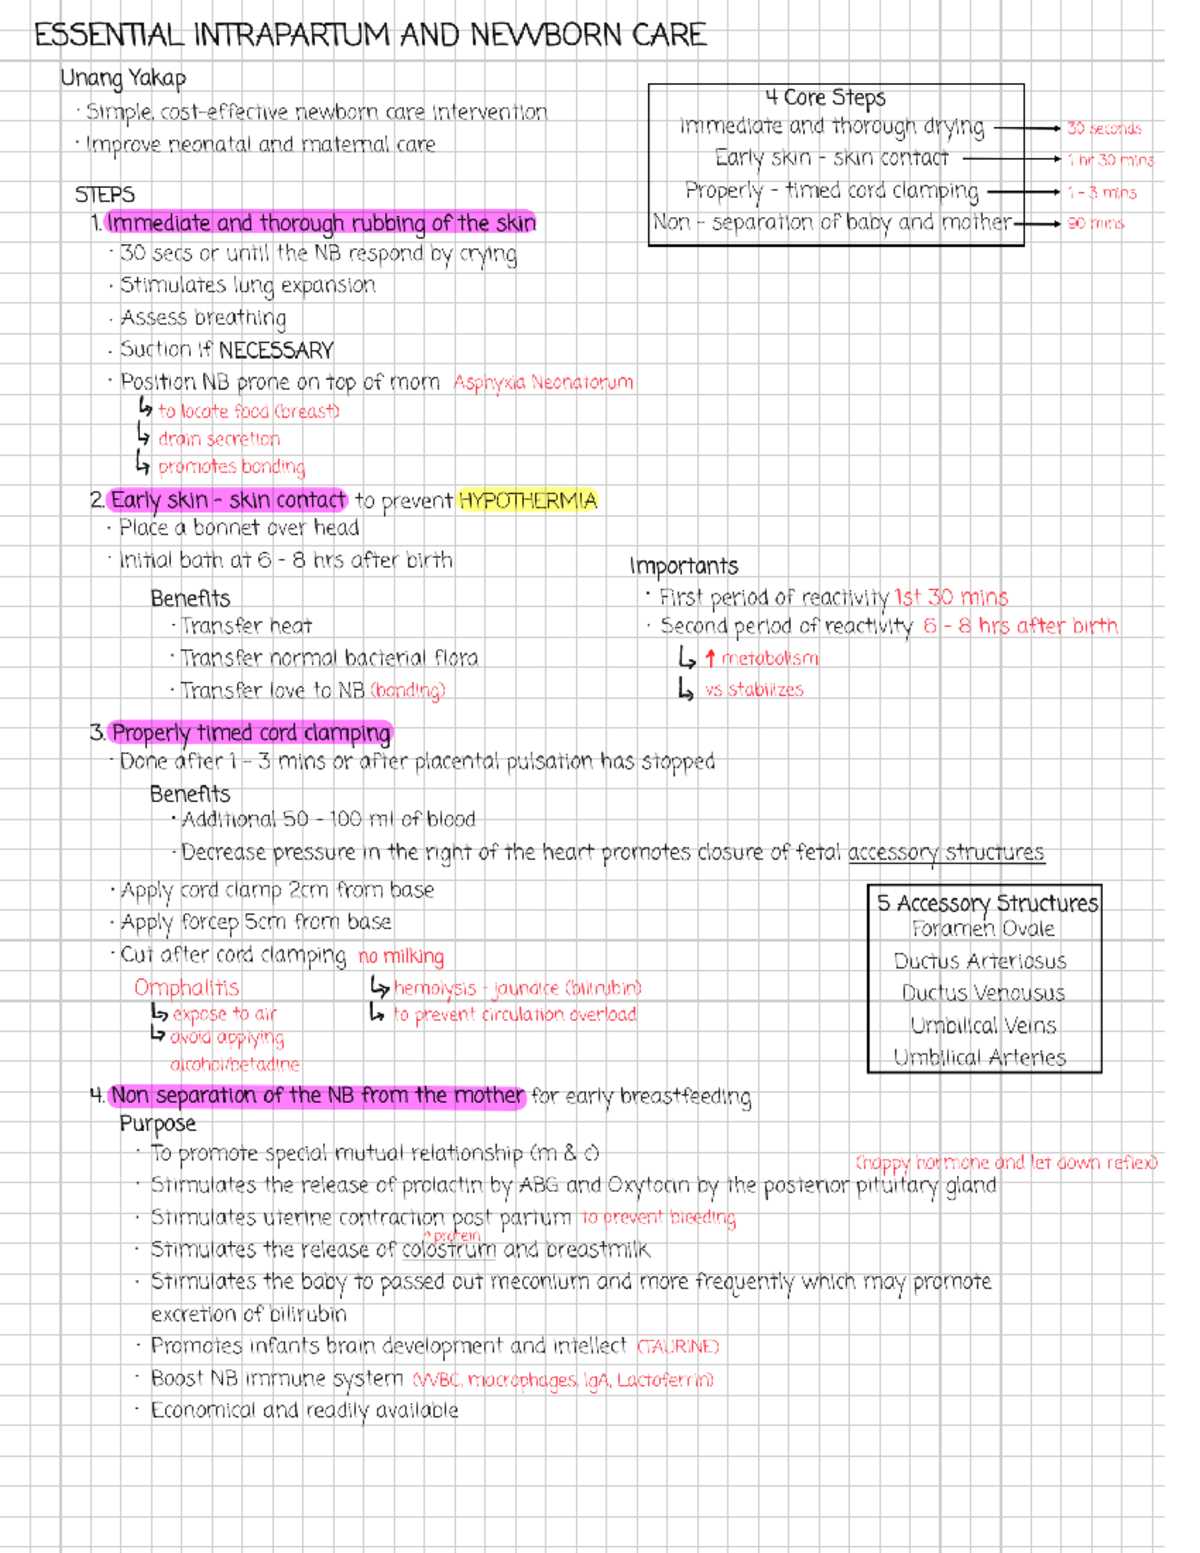 ESSENTIAL INTRAPARTUM AND NEWBORN CARE
Unang Yakap
· Simple, cost-effective newborn care intervention
· Improve neonatal and maternal care
4 Core Steps
Immediate and thorough drying → 30 seconds
Early skin - skin contact → 1 hr 30 mins
Properly - timed cord clamping → 1 - 3 mins
Non - separation of baby and mother → 90 mins
STEPS
1. Immediate and thorough rubbing of the skin
· 30 secs or until the NB respond by crying
· Stimulates lung expansion
· Assess breathing
· Suction if NECESSARY
· Position NB prone on top of mom Asphyxia Neonatorum
↳ to locate food (breast)
↳ drain secretion
↳ promotes bonding
2. Early skin - skin contact to prevent HYPOTHERMIA
· Place a bonnet over head
· Initial bath at 6 - 8 hrs after birth
Benefits
· Transfer heat
· Transfer normal bacterial flora
· Transfer love to NB (bonding)
Importants
· First period of reactivity 1st 30 mins
· Second period of reactivity 6 - 8 hrs after birth
↳ ↑ metabolism
↳ vs stabilizes
3. Properly timed cord clamping
· Done after 1 - 3 mins or after placental pulsation has stopped
Benefits
· Additional 50 - 100 ml of blood
· Decrease pressure in the right of the heart promotes closure of fetal accessory structures
· Apply cord clamp 2cm from base
· Apply forcep 5cm from base
· Cut after cord clamping no milking
↳ hemolysis - jaundice (bilirubin)
↳ to prevent circulation overload
Omphalitis
↳ expose to air
↳ avoid applying
alcohol/betadine
5 Accessory Structures
Foramen Ovale
Ductus Arteriosus
Ductus Venousus
Umbilical Veins
Umbilical Arteries
4. Non separation of the NB from the mother for early breastfeeding
Purpose
· To promote special mutual relationship (m & c)
(happy hormone and let down reflex)
· Stimulates the release of prolactin by ABG and Oxytocin by the posterior pituitary gland
· Stimulates uterine contraction post partum to prevent bleeding
↑ protein
· Stimulates the release of colostrum and breastmilk
· Stimulates the baby to passed out meconium and more frequently which may promote
excretion of bilirubin
· Promotes infants brain development and intellect (TAURINE)
· Boost NB immune system (WBC, macrophages, IgA, Lactoferrin)
· Economical and readily available